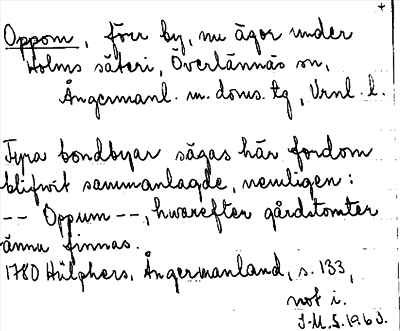 +
Oppom, förr by, nu ägor under
Holms säteri, Överlännäs sn,
Ångermanl. m. doms. tg, Vrnl. l.
Fyra bondbyar sägas här fordom
blifvit sammanlagde, nemligen:
-- Oppum --, hvarefter gårdstomter
ännu finnas.
1780 Hülphers, Ångermanland, s. 133,
not i.
J.M.S. 1963.